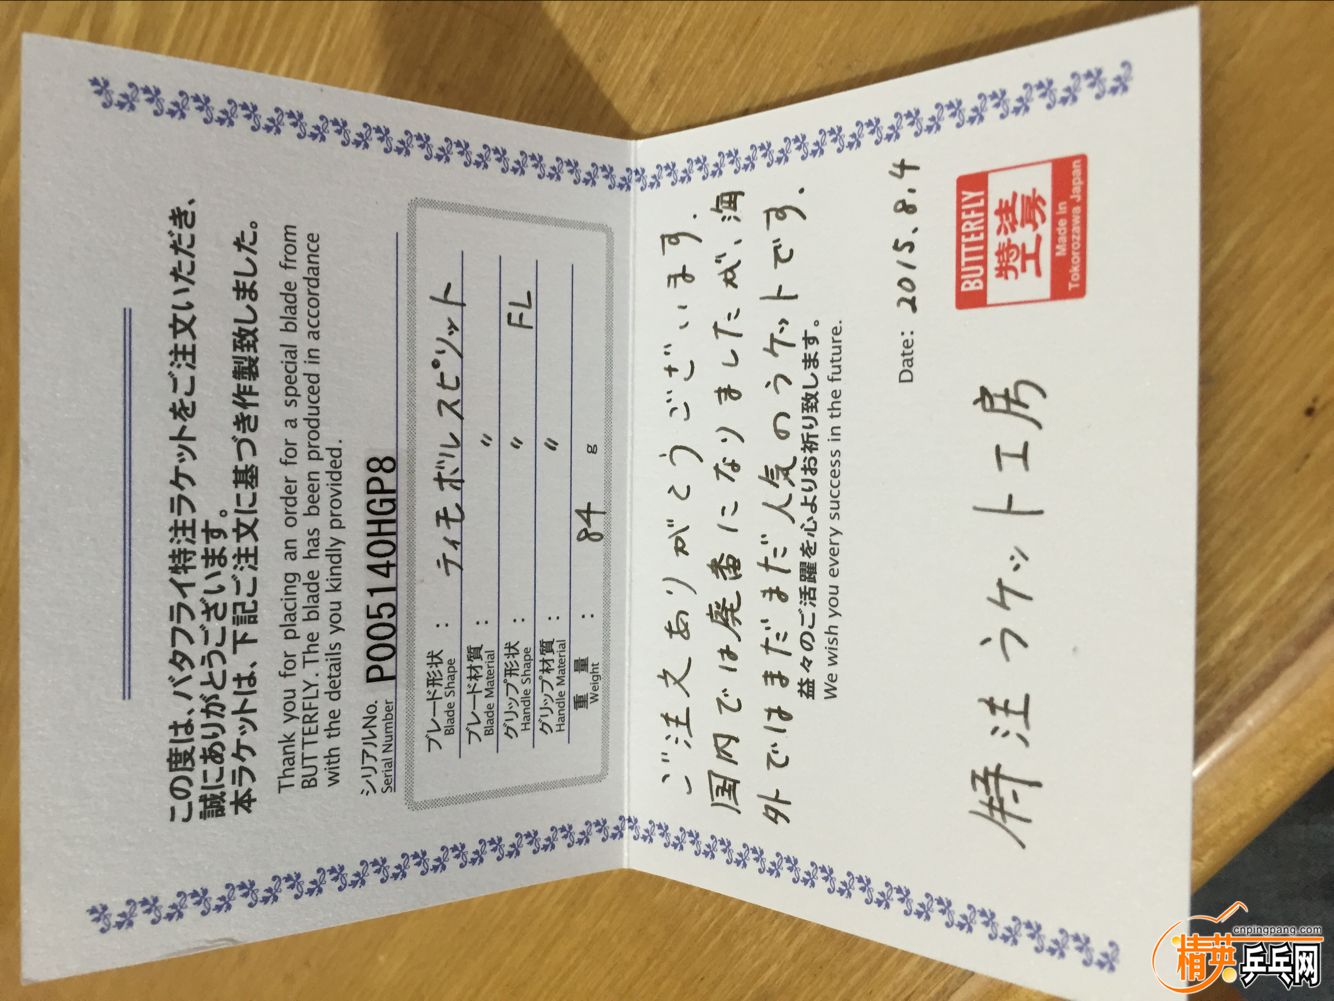 この度は、バタフライ特注ラケットをご注文いただき、
誠にありがとうございます。
本ラケットは、下記ご注文に基づき作製致しました。
Thank you for placing an order for a special blade from
BUTTERFLY. The blade has been produced in accordance
with the details you kindly provided.
シリアルNo.
Serial Number
P005140HGP8
ブレード形状 : ティモボルスピリット
Blade Shape
ブレード材質 : 〃
Blade Material
グリップ形状 : 〃 FL
Handle Shape
グリップ材質 : 〃
Handle Material
重 量 : 84 g
Weight
ご注文ありがとうございます.
国内では廃番になりましたが、海
外ではまだまだ人気のラケットです.
益々のご活躍を心よりお祈り致します。
We wish you every success in the future.
Date: 2015.8.4
BUTTERFLY
特注
工房
Made in
Tokorozawa Japan
特注ラケット工房
cnpingpang.com
精英乒乓网